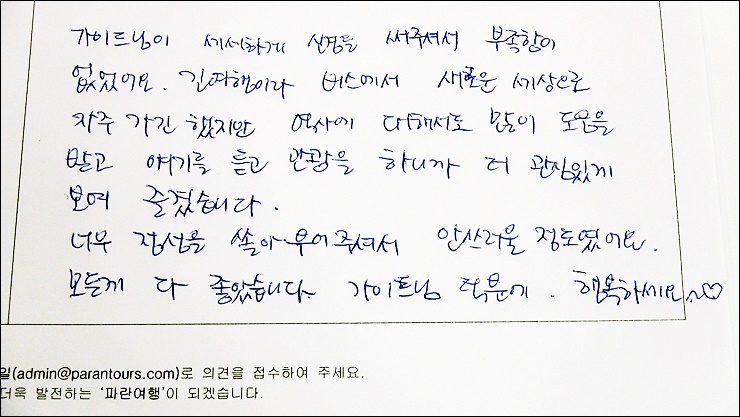 가이드님이 세세하게 신경을 써주셔서 부족함이
없었어요. 긴여행이라 버스에서 새로운 세상으로
자주 가긴 했지만 역사에 대해서도 많이 도움을
받고 얘기를 듣고 관광을 하니까 더 관심있게
보여 즐겼습니다.
너무 정성을 쏟아부어주셔서 안쓰러울 정도였어요.
모든게 다 좋았습니다. 가이드님 덕분에. 행복하세요~♡
일(admin@parantours.com)로 의견을 접수하여 주세요.
더욱 발전하는 '파란여행'이 되겠습니다.